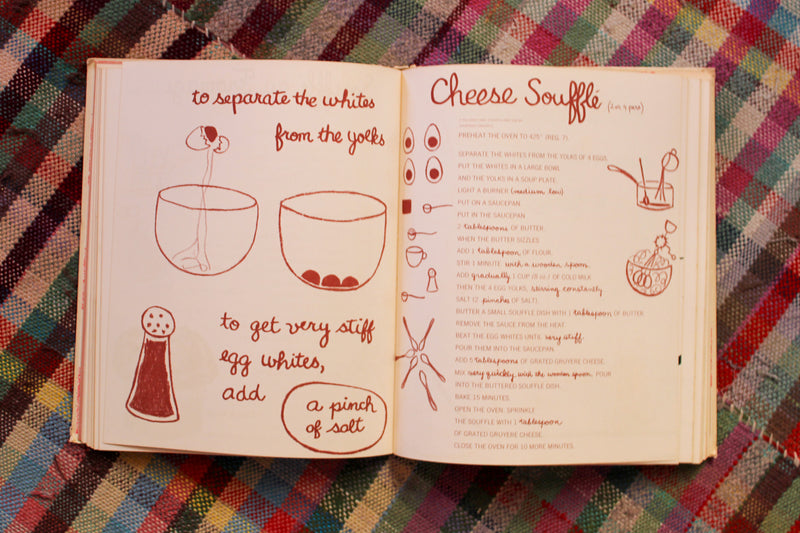 to separate the whites
from the yolks
to get very stiff
egg whites,
add
a pinch
of salt
Cheese Soufflé (2 or 4 pers)
PREHEAT THE OVEN TO 425° (REG. 7).
SEPARATE THE WHITES FROM THE YOLKS OF 4 EGGS.
PUT THE WHITES IN A LARGE BOWL
AND THE YOLKS IN A SOUP PLATE.
LIGHT A BURNER (medium low)
PUT ON A SAUCEPAN.
PUT IN THE SAUCEPAN
2 tablespoons OF BUTTER.
WHEN THE BUTTER SIZZLES
ADD 1 tablespoon OF FLOUR.
STIR 1 MINUTE with a wooden spoon.
ADD gradually 1 CUP (8 oz.) OF COLD MILK
THEN THE 4 EGG YOLKS, stirring constantly
SALT (2 pinches OF SALT).
BUTTER A SMALL SOUFFLE DISH WITH 1 tablespoon OF BUTTER.
REMOVE THE SAUCE FROM THE HEAT.
BEAT THE EGG WHITES UNTIL very stiff.
POUR THEM INTO THE SAUCEPAN.
ADD 5 tablespoons OF GRATED GRUYERE CHEESE.
MIX very quickly with the wooden spoon. POUR
INTO THE BUTTERED SOUFFLE DISH.
BAKE 15 MINUTES.
OPEN THE OVEN. SPRINKLE
THE SOUFFLE WITH 1 tablespoon
OF GRATED GRUYERE CHEESE.
CLOSE THE OVEN FOR 10 MORE MINUTES.